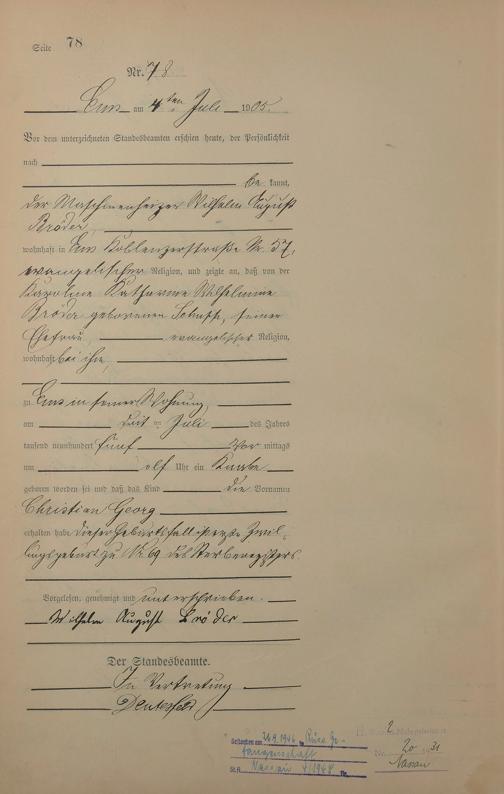 Seite 78
Nr. 78
Ems am 4ten Juli 1905.
Vor dem unterzeichneten Standesbeamten erschien heute, der Persönlichkeit
nach
be kannt,
der Maschinenheizer Wilhelm August
Bröder,
wohnhaft in Ems Koblenzerstraße Nr. 57,
evangelischer Religion, und zeigte an, daß von der
Karoline Katharine Wilhelmine
Bröder geborenen, seiner
Ehefrau, evangelischer Religion,
wohnhaft bei ihm,
zu Ems in seiner Wohnung
am Juli des Jahres
tausend neunhundert fünf Vor mittags
um elf Uhr ein Knabe
geboren worden sei und daß das Kind die Vornamen
Christian Georg
erhalten habe. Dieser Geburtsfall ist erste Zwil-
lingsgeburt zu Nr. 69 des Sterberegisters.
Vorgelesen, genehmigt und unterschrieben.
Wilhelm August Bröder
Der Standesbeamte.
In Vertretung
Gestorben am 26.9.1946 in
fangenschaft
St.A. Nassau 4/1948 Nr.
Nr. 20 31
Nassau